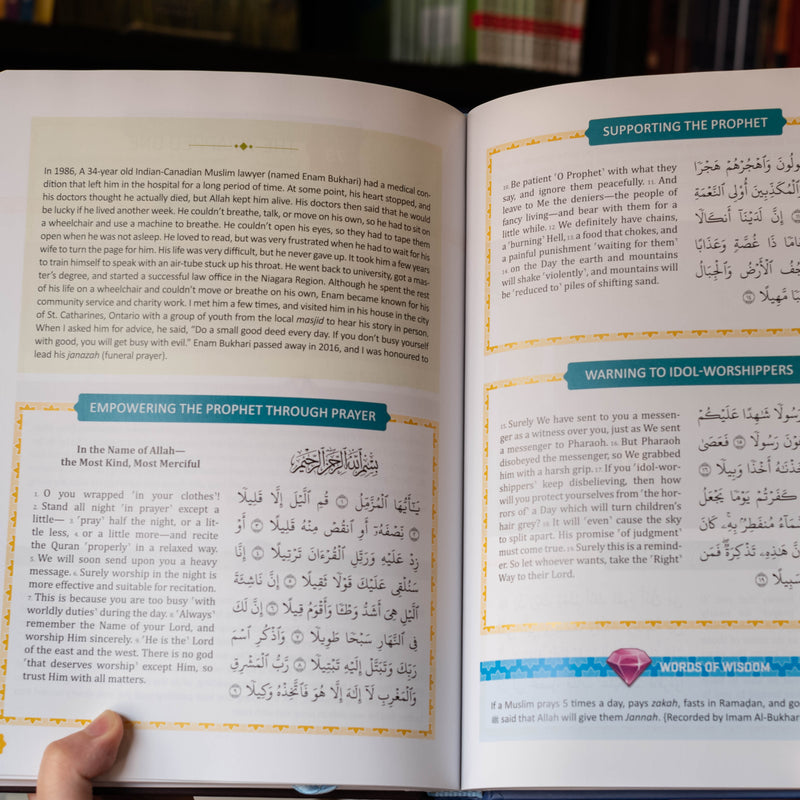 In 1986, A 34-year old Indian-Canadian Muslim lawyer (named Enam Bukhari) had a medical con-
dition that left him in the hospital for a long period of time. At some point, his heart stopped, and
his doctors thought he actually died, but Allah kept him alive. His doctors then said that he would
be lucky if he lived another week. He couldn't breathe, talk, or move on his own, so he had to sit on
a wheelchair and use a machine to breathe. He couldn't open his eyes, so they had to tape them
open when he was not asleep. He loved to read, but was very frustrated when he had to wait for his
wife to turn the page for him. His life was very difficult, but he never gave up. It took him a few years
to train himself to speak with an air-tube stuck up his throat. He went back to university, got a mas-
ter's degree, and started a successful law office in the Niagara Region. Although he spent the rest
of his life on a wheelchair and couldn't move or breathe on his own, Enam became known for his
community service and charity work. I met him a few times, and visited him in his house in the city
of St. Catharines, Ontario with a group of youth from the local masjid to hear his story in person.
When I asked him for advice, he said, "Do a small good deed every day. If you don't busy yourself
with good, you will get busy with evil." Enam Bukhari passed away in 2016, and I was honoured to
lead his janazah (funeral prayer).
EMPOWERING THE PROPHET THROUGH PRAYER
In the Name of Allah—
the Most Kind, Most Merciful
بِسْمِ ٱللَّهِ ٱلرَّحْمَٰنِ ٱلرَّحِيمِ
1. O you wrapped 'in your clothes'!
2. Stand all night 'in prayer' except a
little— 3. 'pray' half the night, or a lit-
tle less, 4. or a little more—and recite
the Quran 'properly' in a relaxed way.
5. We will soon send upon you a heavy
message. 6. Surely worship in the night is
more effective and suitable for recitation.
7. This is because you are too busy 'with
worldly duties' during the day. 8. 'Always'
remember the Name of your Lord, and
worship Him sincerely. 9. 'He is the' Lord
of the east and the west. There is no god
'that deserves worship' except Him, so
trust Him with all matters.
يَـٰٓأَيُّهَا ٱلْمُزَّمِّلُ ١ قُمِ ٱلَّيْلَ إِلَّا قَلِيلًا
٢ نِّصْفَهُۥٓ أَوِ ٱنقُصْ مِنْهُ قَلِيلًا ٣ أَوْ
زِدْ عَلَيْهِ وَرَتِّلِ ٱلْقُرْءَانَ تَرْتِيلًا ٤ إِنَّا
سَنُلْقِى عَلَيْكَ قَوْلًا ثَقِيلًا ٥ إِنَّ نَاشِئَةَ
ٱلَّيْلِ هِىَ أَشَدُّ وَطْـًٔا وَأَقْوَمُ قِيلًا ٦ إِنَّ لَكَ
فِى ٱلنَّهَارِ سَبْحًا طَوِيلًا ٧ وَٱذْكُرِ ٱسْمَ
رَبِّكَ وَتَبَتَّلْ إِلَيْهِ تَبْتِيلًا ٨ رَّبُّ ٱلْمَشْرِقِ
وَٱلْمَغْرِبِ لَآ إِلَـٰهَ إِلَّا هُوَ فَٱتَّخِذْهُ وَكِيلًا ٩
SUPPORTING THE PROPHET
10. Be patient 'O Prophet' with what they
say, and ignore them peacefully. 11. And
leave to Me the deniers—the people of
fancy living—and bear with them for a
little while. 12. We definitely have chains,
a 'burning' Hell, 13. a food that chokes, and
a painful punishment 'waiting for them'
14. on the Day the earth and mountains
will shake 'violently', and mountains will
be 'reduced to' piles of shifting sand.
وَٱهْجُرْهُمْ هَجْرًا
وَٱلْمُكَذِّبِينَ أُو۟لِى ٱلنَّعْمَةِ
إِنَّ لَدَيْنَآ أَنكَالًا
ذَا غُصَّةٍ وَعَذَابًا
ٱلْأَرْضُ وَٱلْجِبَالُ
مَّهِيلًا ١٤
WARNING TO IDOL-WORSHIPPERS
15. Surely We have sent to you a messen-
ger as a witness over you, just as We sent
a messenger to Pharaoh. 16. But Pharaoh
disobeyed the messenger, so We grabbed
him with a harsh grip. 17. If you 'idol-wor-
shippers' keep disbelieving, then how
will you protect yourselves from 'the hor-
rors of' a Day which will turn children's
hair grey? 18. It will 'even' cause the sky
to split apart. His promise 'of judgment'
must come true. 19. Surely this is a remind-
er. So let whoever wants, take the 'Right'
Way to their Lord.
رَسُولًا شَـٰهِدًا عَلَيْكُمْ
رَسُولًا ١٥ فَعَصَىٰ
أَخْذًا وَبِيلًا ١٦
كَفَرْتُمْ يَوْمًا يَجْعَلُ
مُنفَطِرٌۢ بِهِۦ ۚ كَانَ
هَـٰذِهِۦ تَذْكِرَةٌ ۖ فَمَن
سَبِيلًا ١٩
WORDS OF WISDOM
If a Muslim prays 5 times a day, pays zakah, fasts in Ramadan, and
ﷺ said that Allah will give them Jannah. {Recorded by Imam